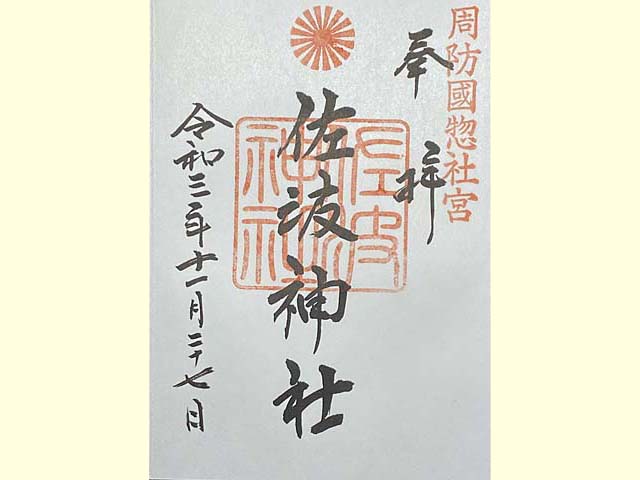 周防國惣社宮
奉拝
佐波神社
佐波神社
令和三年十一月二十七日